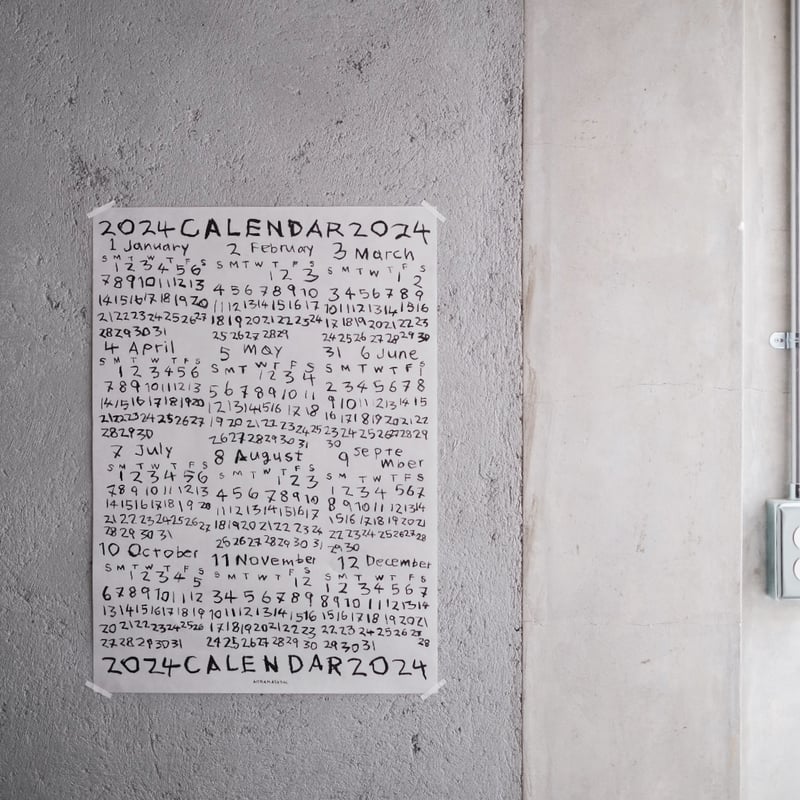 2024 CALENDAR 2024
1 January 2 February 3 March
S M T W T F S S M T W T F S S M T W T F S
1 2 3 4 5 6 1 2 3 1 2
7 8 9 10 11 12 13 4 5 6 7 8 9 10 3 4 5 6 7 8 9
14 15 16 17 18 19 20 11 12 13 14 15 16 17 10 11 12 13 14 15 16
21 22 23 24 25 26 27 18 19 20 21 22 23 24 17 18 19 20 21 22 23
28 29 30 31 25 26 27 28 29 24 25 26 27 28 29 30
4 April 5 May 31 6 June
S M T W T F S S M T W T F S S M T W T F S
1 2 3 4 5 6 1 2 3 4 1
7 8 9 10 11 12 13 5 6 7 8 9 10 11 2 3 4 5 6 7 8
14 15 16 17 18 19 20 12 13 14 15 16 17 18 9 10 11 12 13 14 15
21 22 23 24 25 26 27 19 20 21 22 23 24 25 16 17 18 19 20 21 22
28 29 30 26 27 28 29 30 31 23 24 25 26 27 28 29
30
7 July 8 August 9 septe
mber
S M T W T F S S M T W T F S S M T W T F S
1 2 3 4 5 6 1 2 3 1 2 3 4 5 6 7
7 8 9 10 11 12 13 4 5 6 7 8 9 10 8 9 10 11 12 13 14
14 15 16 17 18 19 20 11 12 13 14 15 16 17 15 16 17 18 19 20 21
21 22 23 24 25 26 27 18 19 20 21 22 23 24 22 23 24 25 26 27 28
28 29 30 31 25 26 27 28 29 30 31 29 30
10 October 11 November 12 December
S M T W T F S S M T W T F S S M T W T F S
1 2 3 4 5 1 2 1 2 3 4 5 6 7
6 7 8 9 10 11 12 3 4 5 6 7 8 9 8 9 10 11 12 13 14
13 14 15 16 17 18 19 10 11 12 13 14 15 16 15 16 17 18 19 20 21
20 21 22 23 24 25 26 17 18 19 20 21 22 23 22 23 24 25 26 27 28
27 28 29 30 31 24 25 26 27 28 29 30 29 30 31
2024 CALENDAR 2024